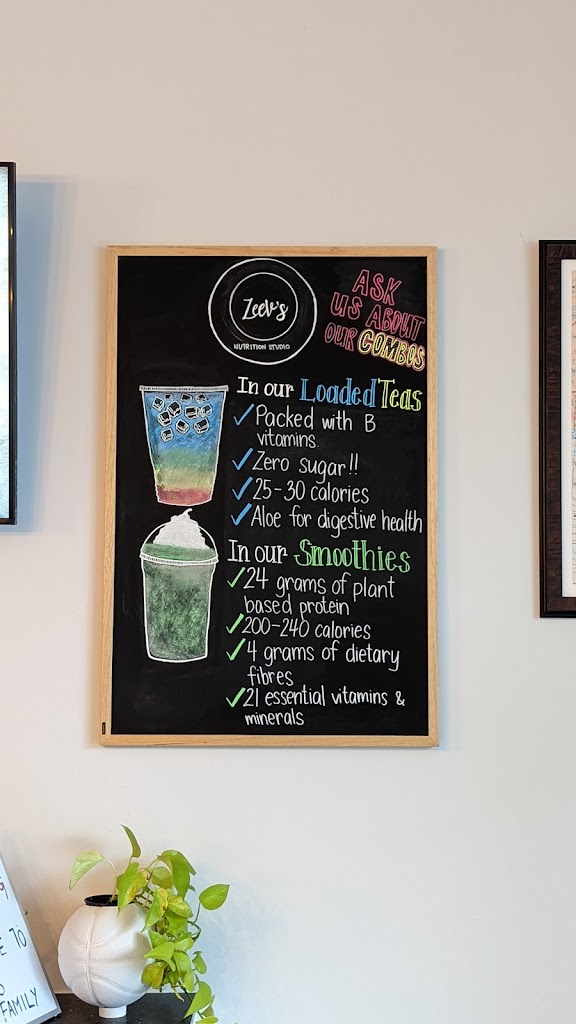 Zeev's
NUTRITION STUDIO
ASK
US ABOUT
OUR COMBOS
In our Loaded Teas
✓Packed with B
vitamins
✓Zero sugar!!
✓25-30 calories
✓Aloe for digestive health
In our Smoothies
✓24 grams of plant
based protein
✓200-240 calories
✓4 grams of dietary
fibres
✓21 essential vitamins &
minerals
70
FAMILY